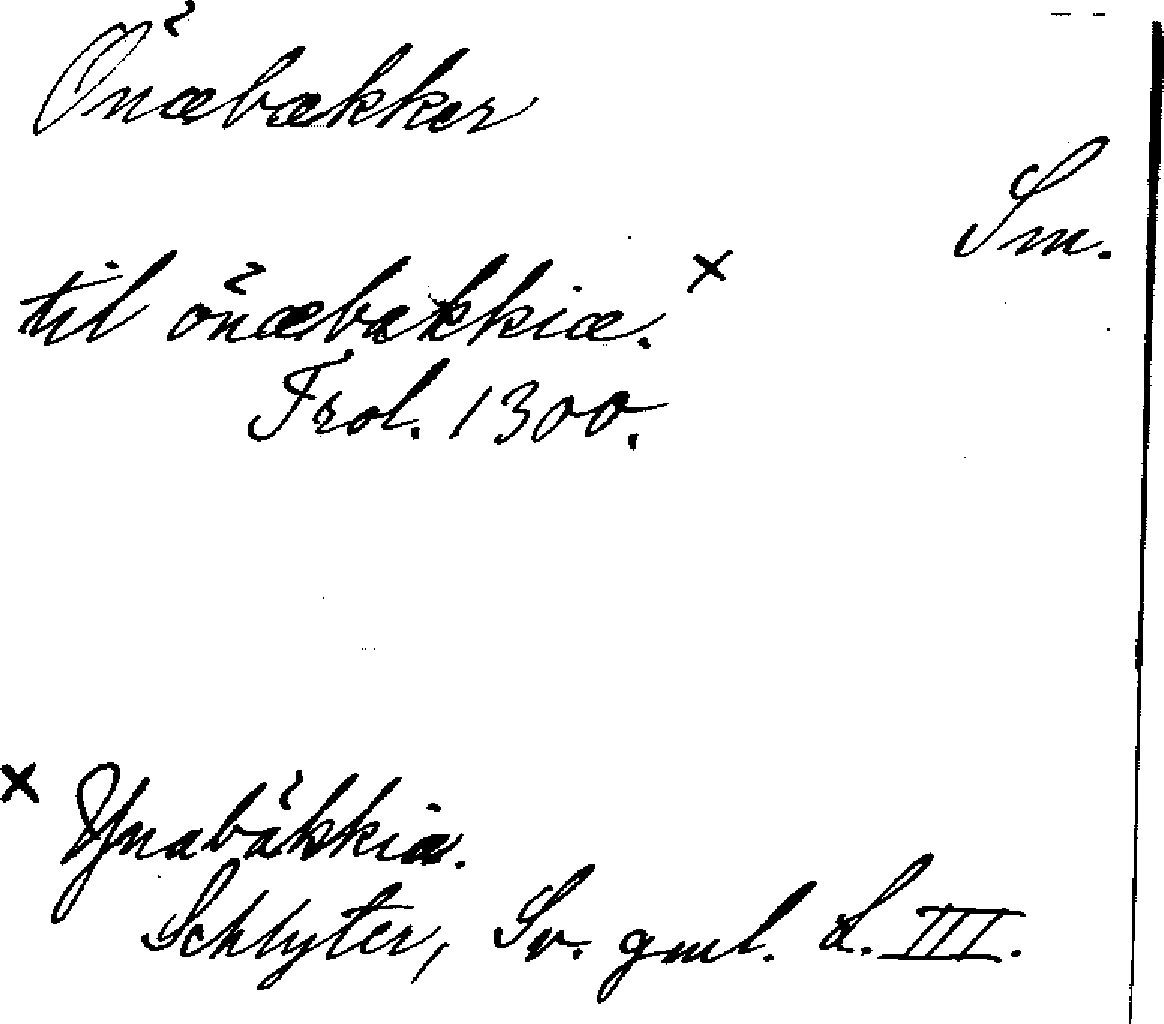 Önæbækker
Sm.
til önæbækkiæ. ×
Frol. 1300.
× Ynabäkkia.
Schlyter, Sv. gml. L. III.